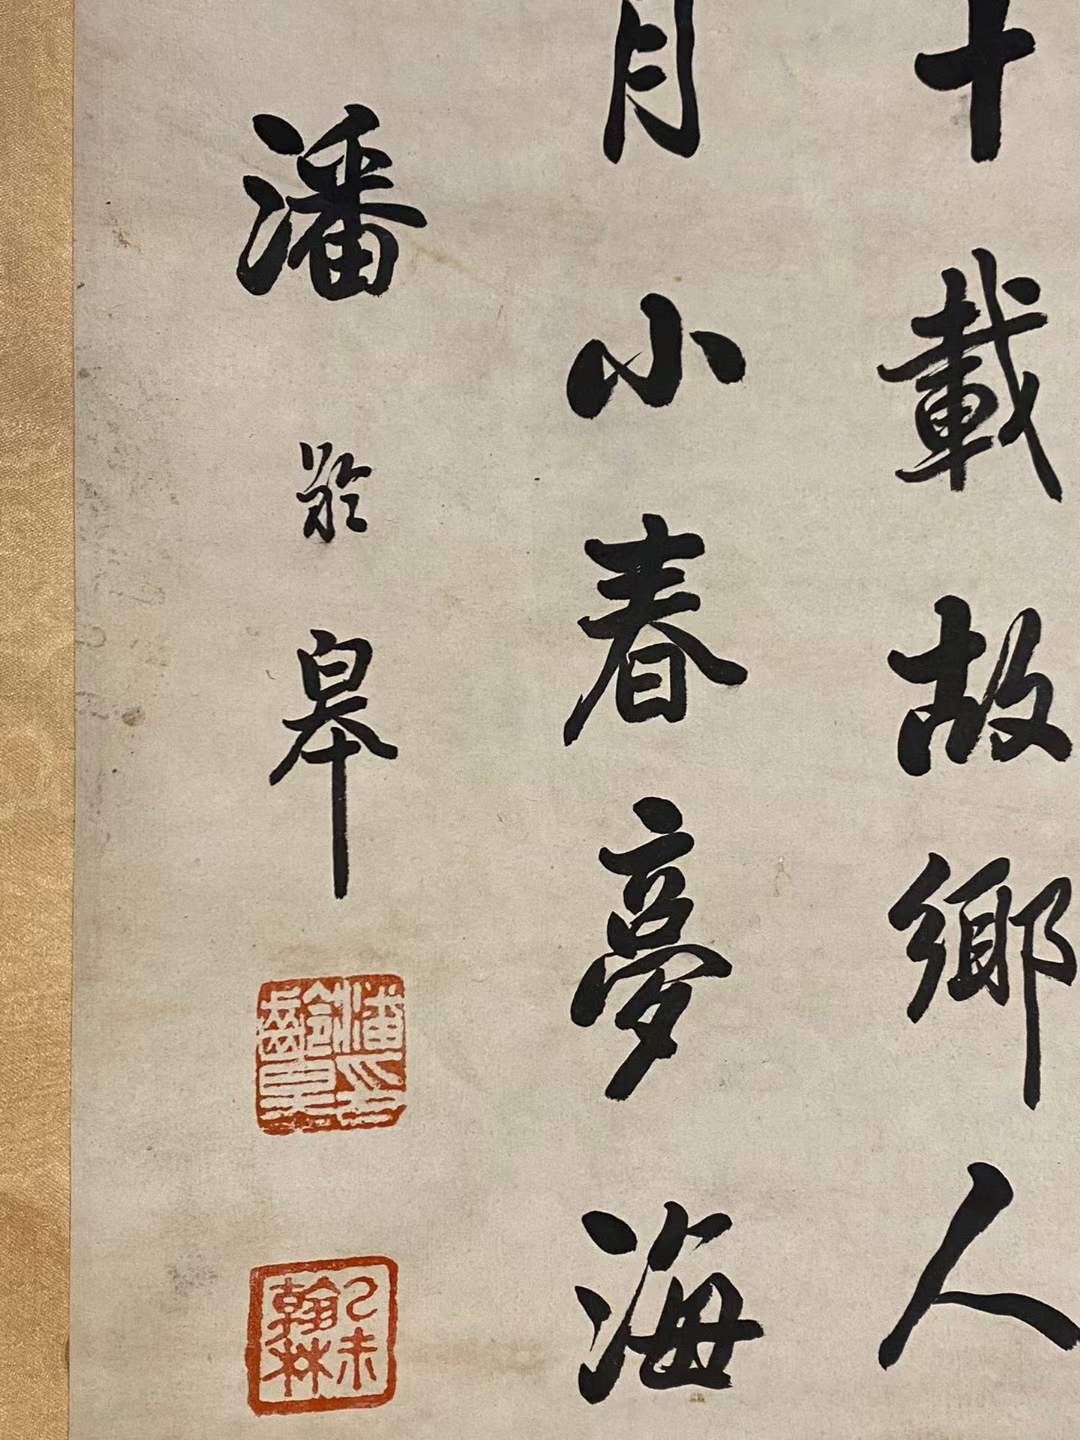 十載故鄉人
月小春夢海
潘齡皋
潘齡皋印
己未翰林